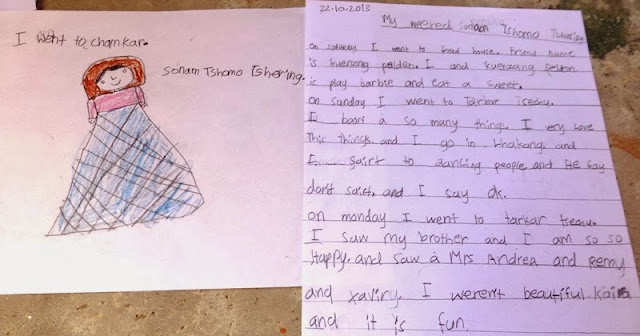 I went to chamkar.
Sonam Tshomo Tshering.
22.10.2013
My weered sonam Tshomo Tshering
on satheday I went to frend house. Friend name
is kuenzang pelden. I and kuenzang pelden
is play barbie and eat a sweet.
on Sunday I went to Tarkar Tsechu.
I boort a so many things. I very love
This things. and I go in Lhakang. and
I sairt to dancing people and He say
don't sairt. and I say ok.
on monday I went to tarkar tsechu.
I saw my brother and I am so so
Happy. and saw a Mrs Andrea and Remy
and xaliry. I weren't beautiful kaira
and it is fun